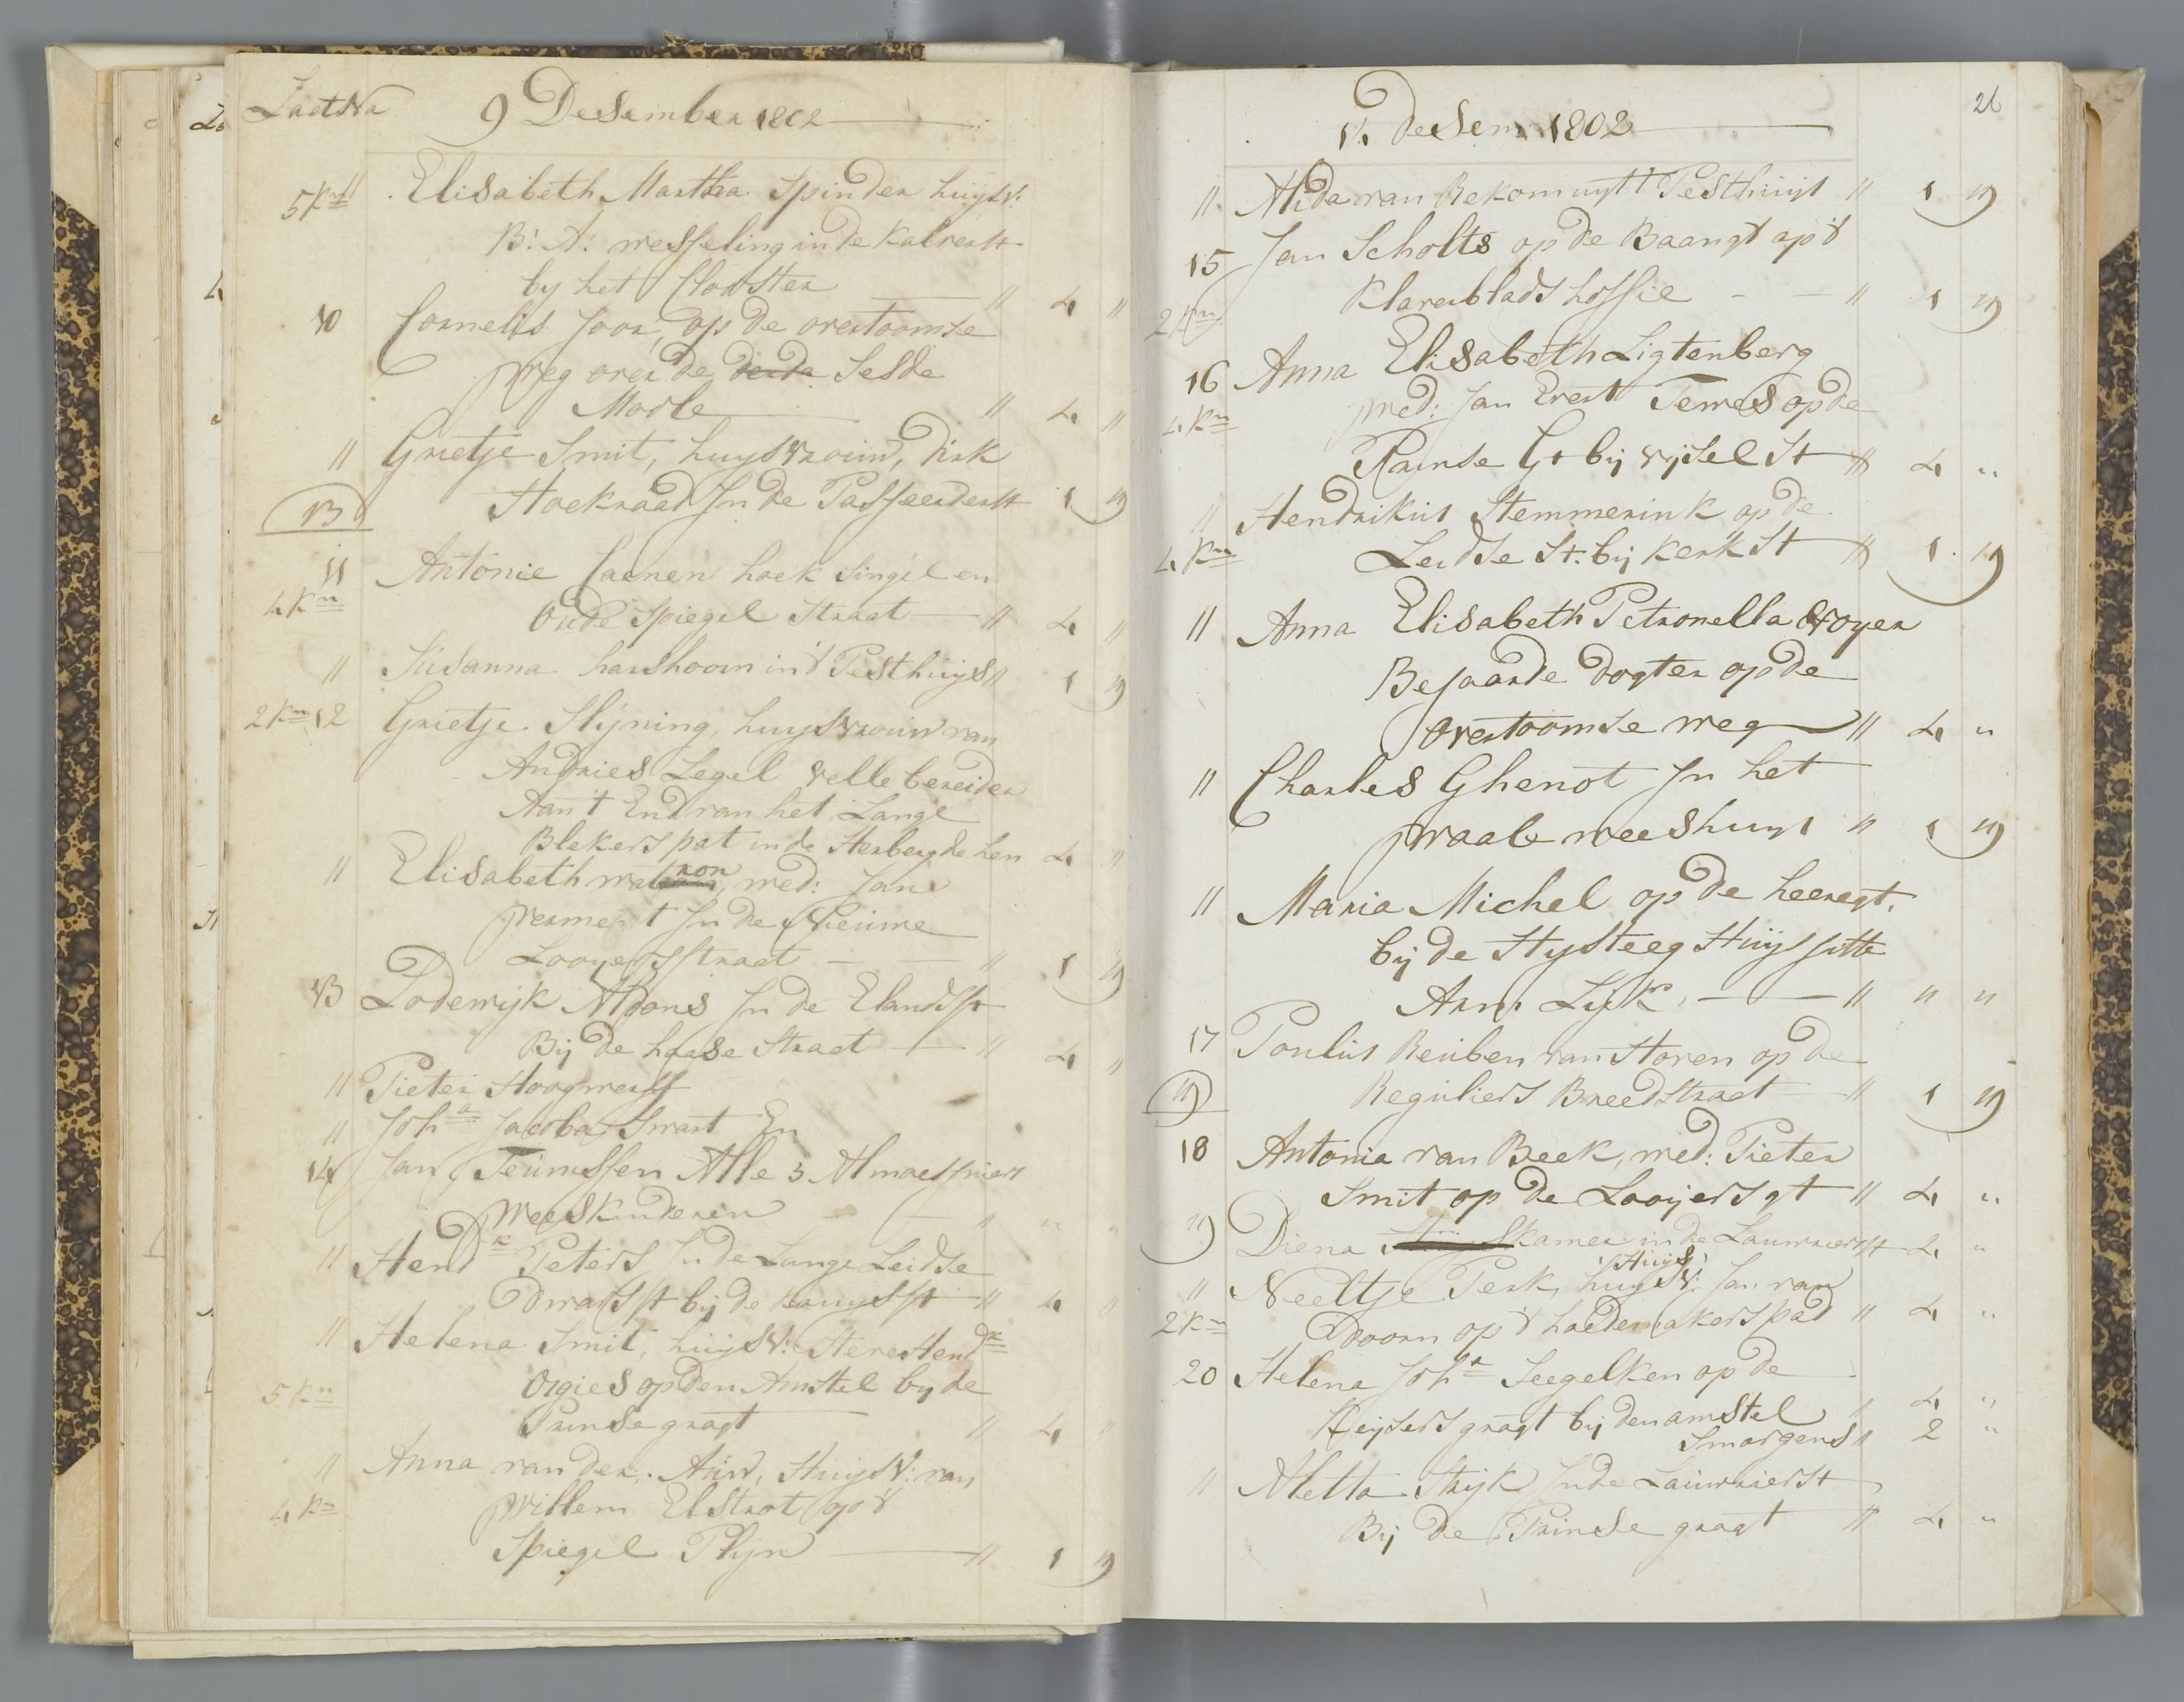 Laatste 9 Desember 1802
5 kn " Elisabeth Martha Spinder huysv:
B: A: wesseling in de Kalverst
by het Clooster " 4 "
10 Cornelis Joor, op de overtoomse
weg over de derde Sesde
Moole " 4 "
" Grietje Smit, huysvrouw, Dirk
13 Hoekraad In de Passeerderst 1 19
11 Antonie Coenen hoek Singel en
4 kn Oude Spiegel Straat " 4 "
" Susanna harshoorn in 't Pesthuys " 1 19
2 kn 12 Grietje Slyning, huysvrouw van
Andries Legel velle bereider
Aan 't End van het Lange
Blekers pat in de Herberg de hen 4 "
" Elisabeth wed: Jan
werment In de Nieuwe
Looyersstraat " 1 19
13 Lodewyk Alfons In de Elandsst
Bij de haase Straat " 4 "
" Pieter Hoogwerff
" Joha Jacoba Swart En
14 Jan Teunissen Alle 3 Almoesseniers
weeskinderen " " "
" Hendk Peters In de Lange Leidse
Dwarsst bij de Kruysst " 4 "
" Helena Smit, huysv: Steve Hendk
5 kn Orgies op den Amstel by de
Prinse gragt " 4 "
" Anna van der Auw, Huysv: van
4 kn Willem Elstrot op 't
Spiegel Plyn " 1 19
26
14 deSem 1802
" Alida van Bekom uyt 't Pesthuys " 1 19
15 Jan Scholts op de Baangt op 't
2 kn Klaverblads hoffie " 1 19
16 Anna Elisabeth Ligtenberg
4 kn wed: Jan Evert Temes op de
Prinse Gt bij Vyselst " 4 "
" Hendrikus Stemmerink op de
4 kn Leidse St. bij Kerk St " 1 19
" Anna Elisabeth Petronella Royer
Bejaarde Dogter op de
Overtoomse weg " 4 "
" Charles Ghenot In het
waale weeshuys " 1 19
" Maria Michel op de heeregt.
bij de Hysteeg Huyssitte
Arm Lijk " " "
17 Poulus Reuben van Hoven op de
19 Reguliers Breedstraat " 1 19
18 Antonia van Beek, wed: Pieter
Smit op de Looijersgt " 4 "
19 Diena Huyskamer in de Lauwrierst 4 "
" Neeltje Perk, huysv: Jan van
2 kn Doorn op 't hoedemakerspad " 4 "
20 Helena Joha Seegelken op de
Keysersgragt bij den amstel " 4 "
Smorgens " 2 "
" Aletta Stryk In de Lauwrierst
Bij de Prinse gragt " 4 "